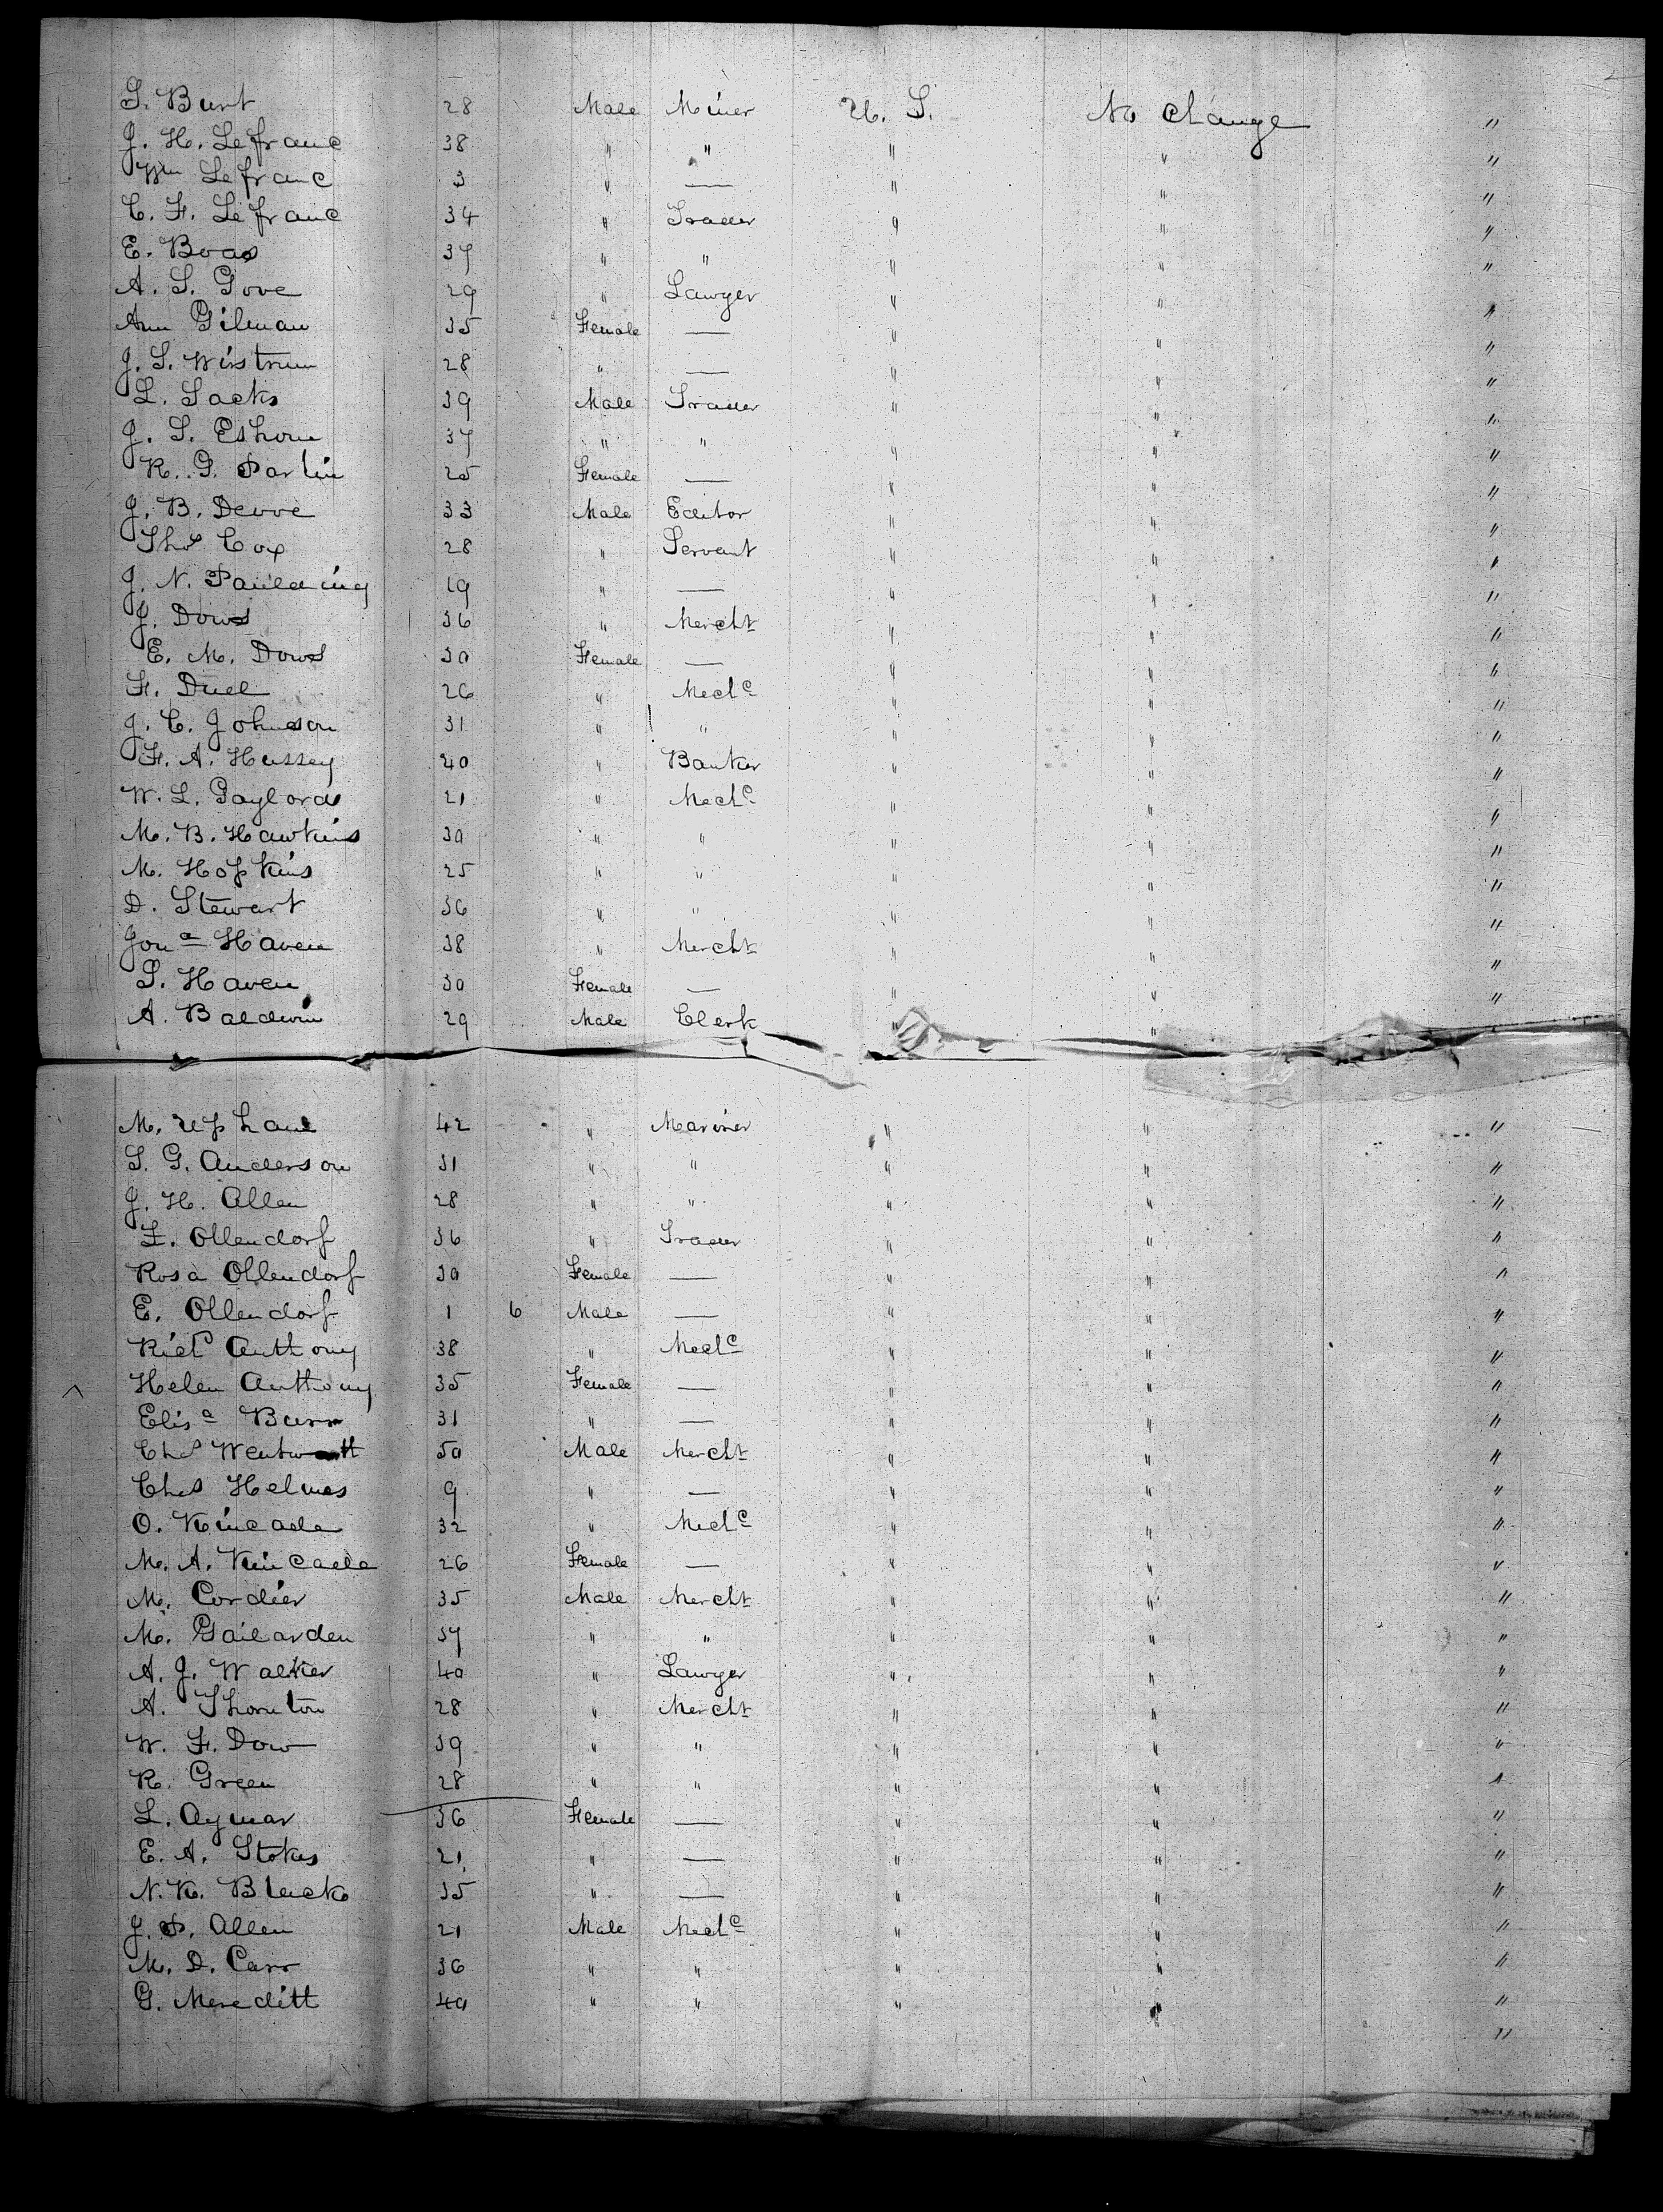 S. Burt 28 Male Miner U. S. No Change "
J. H. Lefranc 38 " " " " "
Wm Lefranc 3 " — " " "
C. F. Lefranc 34 " Trader " " "
E. Boas 37 " " " " "
A. S. Gove 29 " Lawyer " " "
Ann Gilman 35 Female — " " "
J. S. 28 " — " " "
L. Sacks 39 Male Trader " " "
J. S. 37 " " " " "
R. G. 25 Female — " " "
J. B. Devoe 33 Male Editor " " "
Thos Cox 28 " Servant " " "
J. N. Paulding 19 " — " " "
J. Dows 36 " Mercht " " "
E. M. Dows 30 Female — " " "
F. Duel 26 " Mechc " " "
J. C. Johnson 31 " " " " "
F. A. Hussey 40 " Banker " " "
W. L. Gaylords 21 " Mechc " " "
M. B. Hawkins 30 " " " " "
M. Hopkins 25 " " " " "
D. Stewart 36 " " " " "
Jona Haven 38 " Mercht " " "
S. Haven 30 Female — " " "
A. Baldwin 29 Male Clerk " "
M. Upham 42 " Mariner " " "
S. G. Anderson 31 " " " " "
J. H. Allen 28 " " " " "
F. Ollendorf 36 " Trader " " "
Rosa Ollendorf 30 Female — " " "
E. Ollendorf 1 6 Male — " " "
Richd Anthony 38 " Mechc " " "
Helen Anthony 35 Female — " " "
Elisa Burr 31 " — " " "
Chs Wentworth 50 Male Mercht " " "
Chs Helmes 9 " — " " "
O. Kincade 32 " Mechc " " "
M. A. Kincade 26 Female — " " "
M. Cordier 35 Male Mercht " " "
M. Gailarden 37 " " " " "
A. J. Walker 40 " Lawyer " " "
A. Thornton 28 " Mercht " " "
W. F. Dow 39 " " " " "
R. Green 28 " " " " "
L. Aymar 36 Female — " " "
E. A. Stokes 21 " — " " "
N. K. Black 35 " — " " "
J. P. Allen 21 Male Mechc " " "
M. D. Carr 36 " " " " "
G. Meredith 40 " " " " "
"